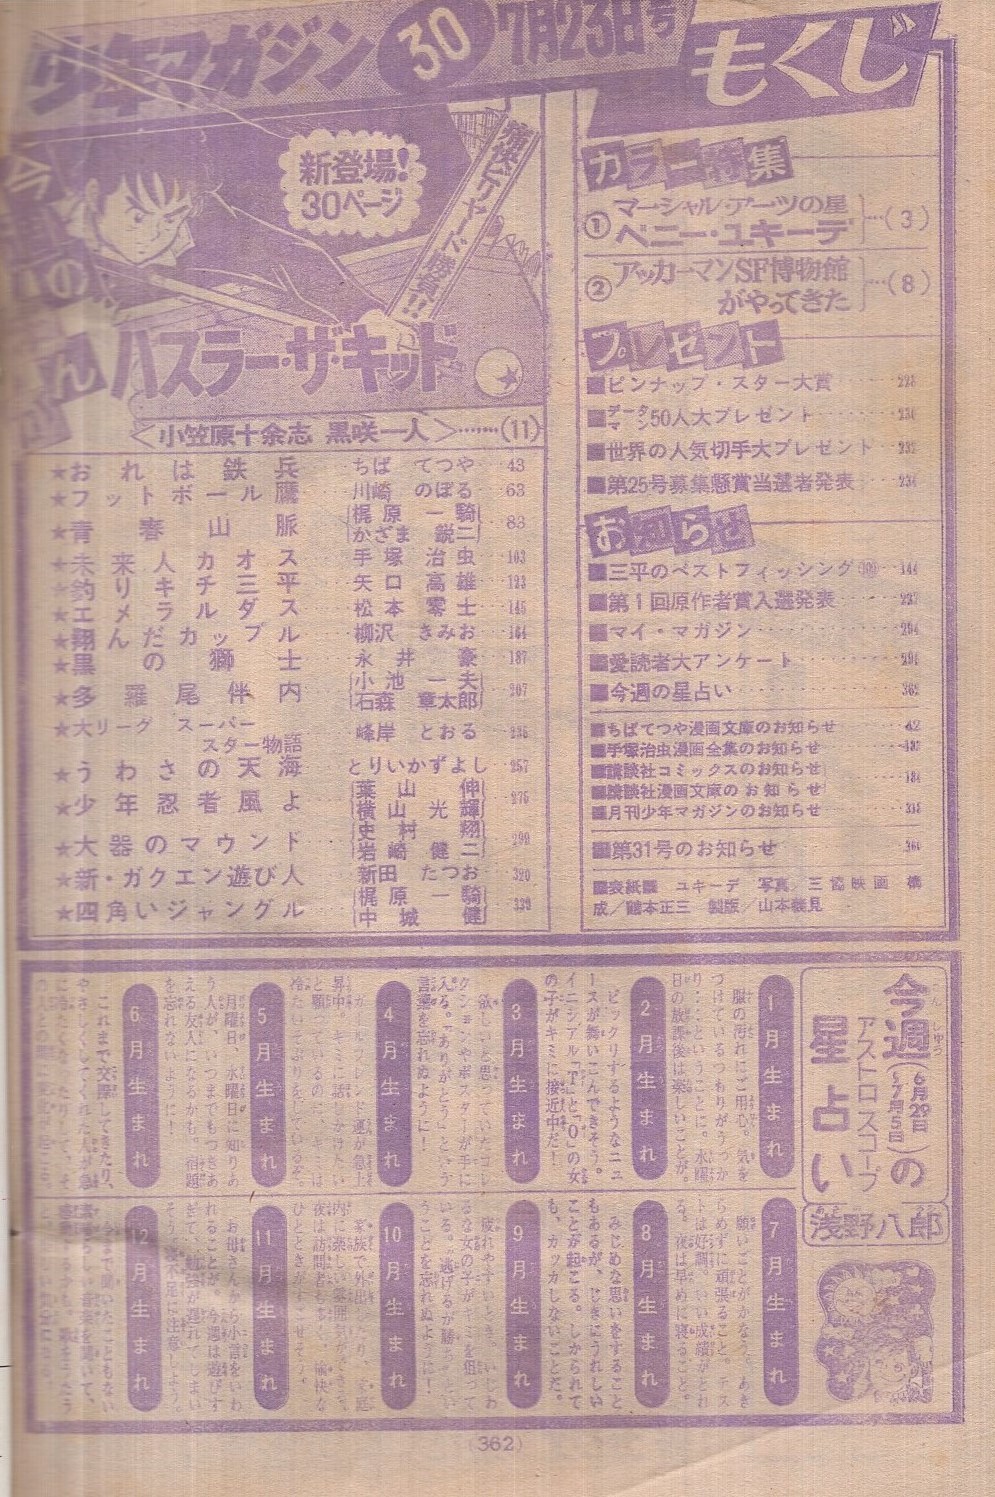 少年マガジン 30 7月23日号
もくじ
新登場!
30ページ
痛快ビリヤード勝負!!
ハスラー・ザ・キッド
〈小笠原十余志 黒咲一人〉……(11)
★おれは鉄兵 ちば てつや 43
★フットボール鷹 川崎 のぼる 63
★青春山脈 梶原一騎 かざま鋭二 83
★未来人カオス 手塚治虫 103
★釣りキチ三平 矢口高雄 123
★エメラルダス 松本零士 145
★翔んだカップル 柳沢きみお 164
★黒の獅士 永井豪 187
★多羅尾伴内 小池一夫 石森章太郎 207
★大リーグ スーパースター物語 峰岸とおる
★うわさの天海 とりいかずよし 257
★少年忍者風よ 葉山伸 横山光輝 275
★大器のマウンド 史村翔 岩崎健二
★新・ガクエン遊び人 新田たつお 320
★四角いジャングル 梶原一騎 中城健
カラー特集
①マーシャルアーツの星
ベニー・ユキーデ …(3)
②アッカーマンSF博物館
がやってきた …(8)
プレゼント
■ピンナップ・スター大賞
■データマン50人大プレゼント
■世界の人気切手大プレゼント
■第25号募集懸賞当選者発表
おしらせ
■三平のベストフィッシング 144
■第1回原作者賞入選発表
■マイ・マガジン
■愛読者大アンケート
■今週の星占い 362
■ちばてつや漫画文庫のお知らせ
■手塚治虫漫画全集のお知らせ
■講談社コミックスのお知らせ
■講談社漫画文庫のお知らせ
■月刊少年マガジンのお知らせ
■第31号のお知らせ
■表紙■ ユキーデ 写真/三協映画 構
成/鶴本正三 製版/山本機見
今週の
(6月29日
〜7月5日)
アストロスコープ
星占い
浅野八郎
1月生まれ
服の汚れにご用心。気を
つけているつもりがうっか
り…ということに。水曜
日の放課後は楽しいことが。
2月生まれ
ビックリするようなニュ
ースが舞いこんできそう。
イニシアル「T」と「O」の女
の子がキミに接近中だ！
3月生まれ
欲しいと思っていたコレ
クションやポスターが手に
入る。「ありがとう」という
言葉を忘れぬように！
4月生まれ
ガールフレンド運が急上
昇中。キミに話しかけたい
と願っているのに、キミは
冷たいそぶりをしているぞ。
5月生まれ
月曜日、水曜日に知りあ
う人が、いつまでもつきあ
える友人になるかも。宿題
を忘れないように！
6月生まれ
これまで交際してきたり、
やさしくしてくれた人が急
7月生まれ
願いごとがかなう。あき
らめずに頑張ること。テス
トは好調。いい成績がとれ
る。夜は早めに寝ること。
8月生まれ
みじめな思いをすること
もあるが、じきにうれしい
ことが起こる。しかられて
も、カッカしないことだ。
9月生まれ
疲れやすいとき。いじわ
るな女の子がキミを狙って
いる。"逃げるが勝ち"とい
うことを忘れぬように！
10月生まれ
家族で外出したり、家庭
内に楽しい雰囲気ができそう。
夜は訪問者も多く、愉快な
ひとときがすごせそう。
11月生まれ
お母さんから小言をいわ
れることが。今週は遊びす
ぎて、勉強が遅れてしまい
そう。寝不足に注意しよう。
12月生まれ
今まで聞いたこともない
(362)